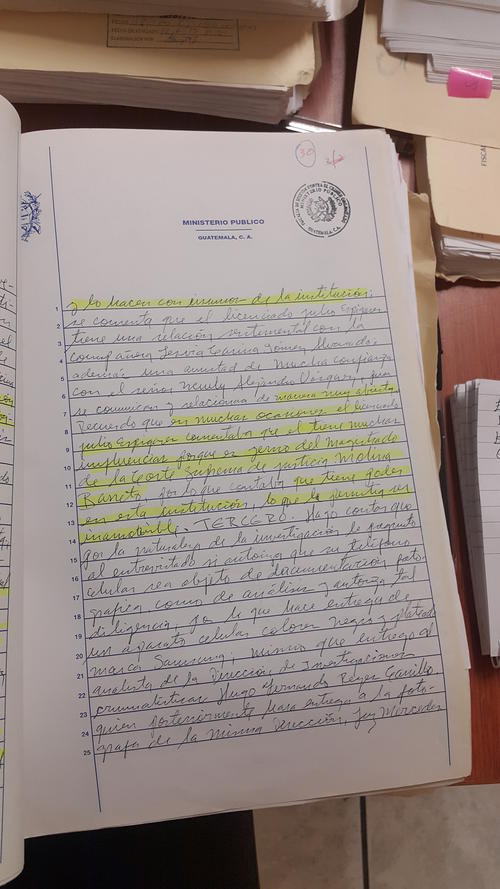 30
MINISTERIO PUBLICO
GUATEMALA, C. A.
1 y lo hacen con insumos de la institución;
2 se comenta que el licenciado Julio Espigares
3 tiene una relación sentimental con la
4 compañera Jessica Gómez Alvarado,
5 además una amistad de mucha confianza
6 con el señor Alejandro Vargas, pues
7 se comunican y relacionan de manera muy abierta.
8 Recuerdo que en muchas ocasiones el licenciado
9 Julio Espigares comentaba que el tiene muchas
10 influencias porque es yerno del magistrado
11 de la Corte Suprema de Justicia Molina
12 Barreto, por lo que contaba que tiene poder
13 en esta institución, lo que le permitía ser
14 inamovible. TERCERO. Hago constar que
15 por la naturaleza de la investigación le pregunto
16 al entrevistado si autoriza que su teléfono
17 celular sea objeto de documentación foto-
18 grafica, como de análisis y autoriza tal
19 diligencia, por lo que hace entrega de
20 un aparato celular colores negro y plateado
21 marca Samsung, mismo que entrego al
22 analista de la Dirección de Investigaciones
23 criminalisticas Hugo Fernando Reyes Carrillo,
24 quien posteriormente hace entrega a la foto-
25 grafa de la misma Dirección, Mercedes